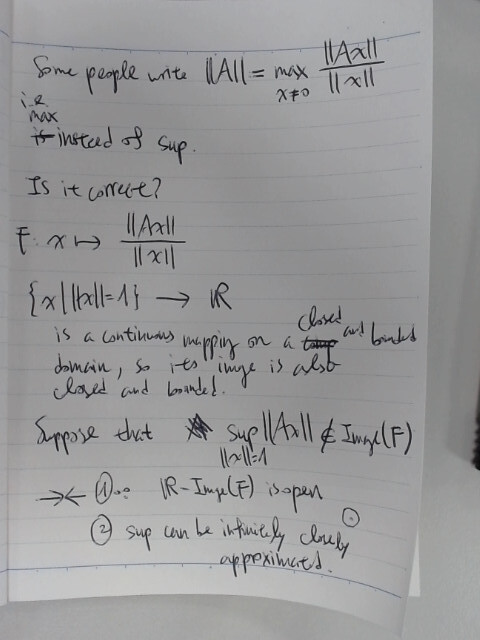 Some people write ||A|| = max ||Ax|| / ||x||
x≠0
i.e.
max
instead of sup.
Is it correct?
F: x ↦ ||Ax|| / ||x||
{x | ||x||=1} → ℝ
is a continuous mapping on a closed and bounded
domain, so its imge is also
closed and bounded.
Suppose that sup ||Ax|| ∉ Imge(F)
||x||=1
→← ① ∵ ℝ - Imge(F) is open
② sup can be infinitely closely
approximated.